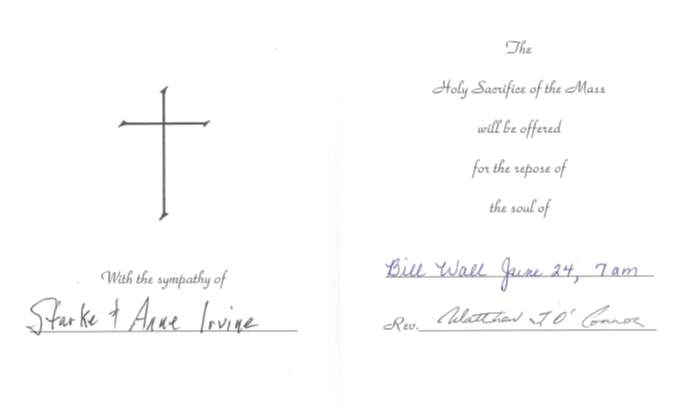 With the sympathy of
Starke & Anne Irvine
The
Holy Sacrifice of the Mass
will be offered
for the repose of
the soul of
Bill Wall June 24, 7am
Rev. Matthew J O'Connor